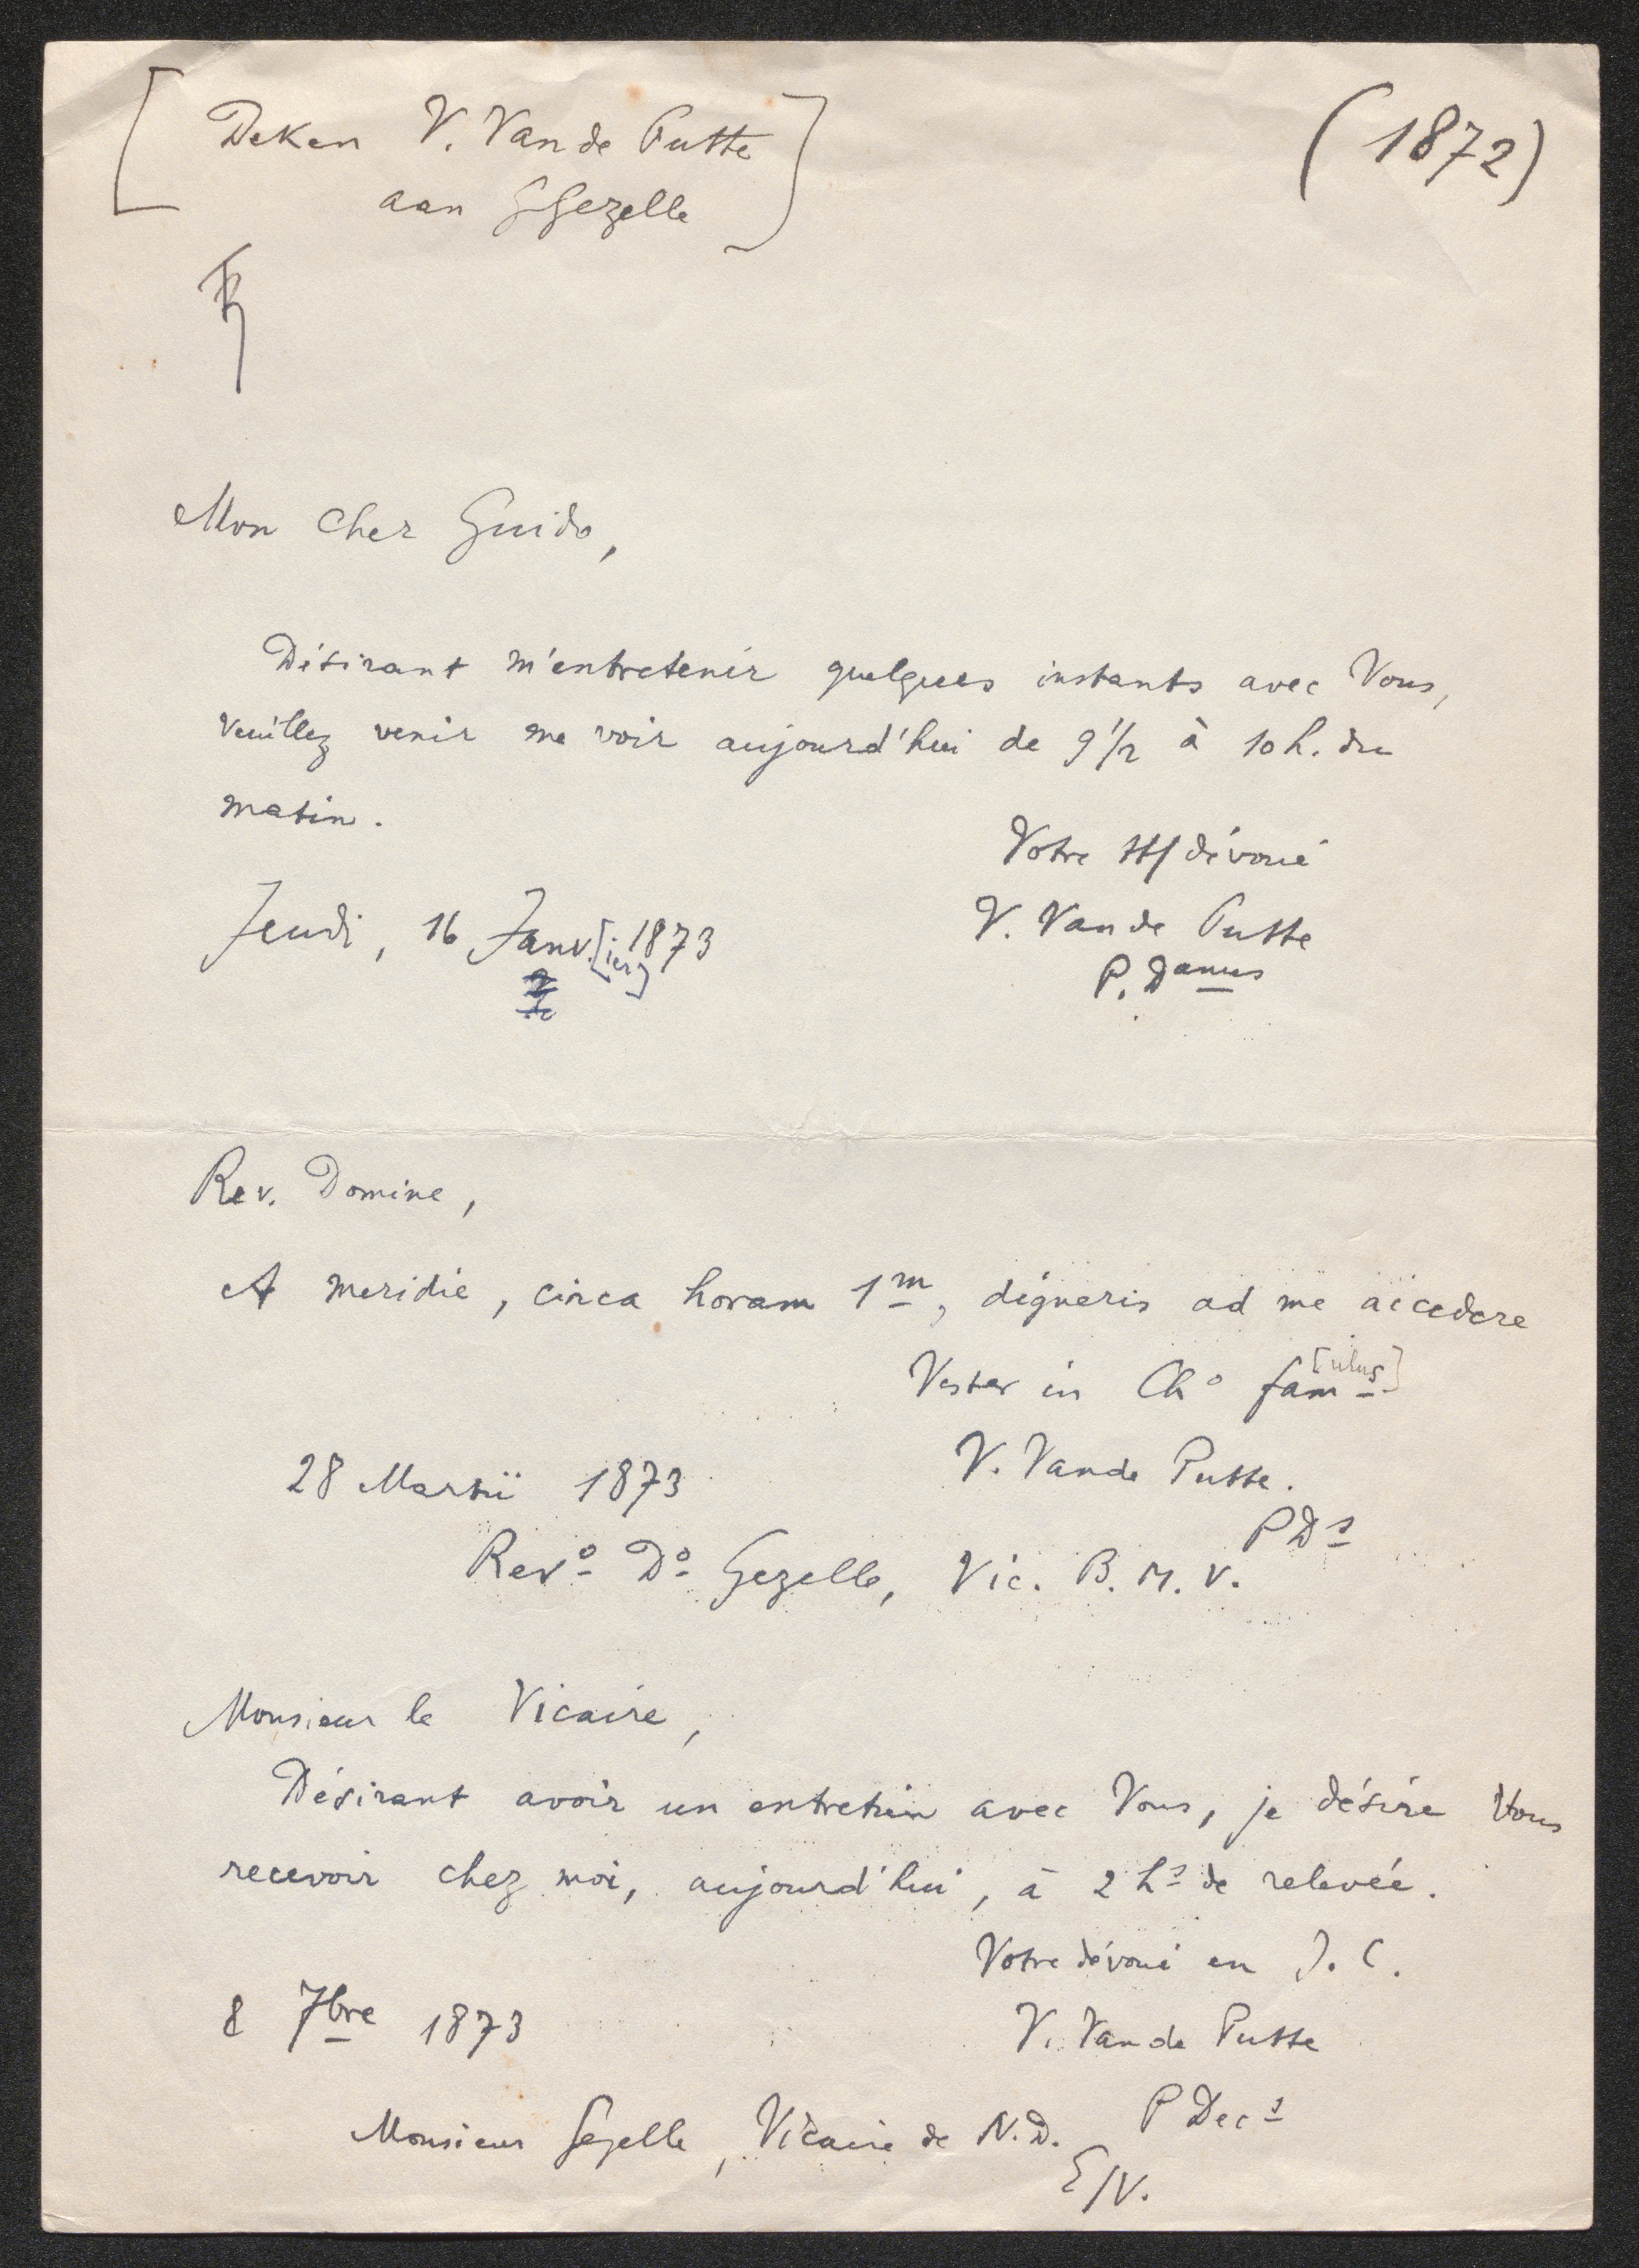 [Deken V. Van de Putte
aan GGezelle]
(1872)
Mon cher Guido,
Désirant m'entretenir quelques instants avec Vous,
veuillez venir me voir aujourd'hui de 9 1/2 à 10 h. du
matin.
Votre tt/ dévoué
Jeudi, 16 Janv.[ier] 1873
V. Van de Putte
P. Danus
Rev. Domine,
A meridie, circa horam 1m, digneris ad me accedere
Vester in Cho fam[ulus]
28 Martii 1873
V. Vande Putte.
PDs
Revo Do Gezelle, Vic. B. M. V.
Monsieur le Vicaire,
Désirant avoir un entretien avec Vous, je désire Vous
recevoir chez moi, aujourd'hui, à 2 hs de relevée.
Votre dévoué en J. C.
8 7bre 1873
V. Van de Putte
P Decs
Monsieur Gezelle, Vicaire de N.D.
E/V.